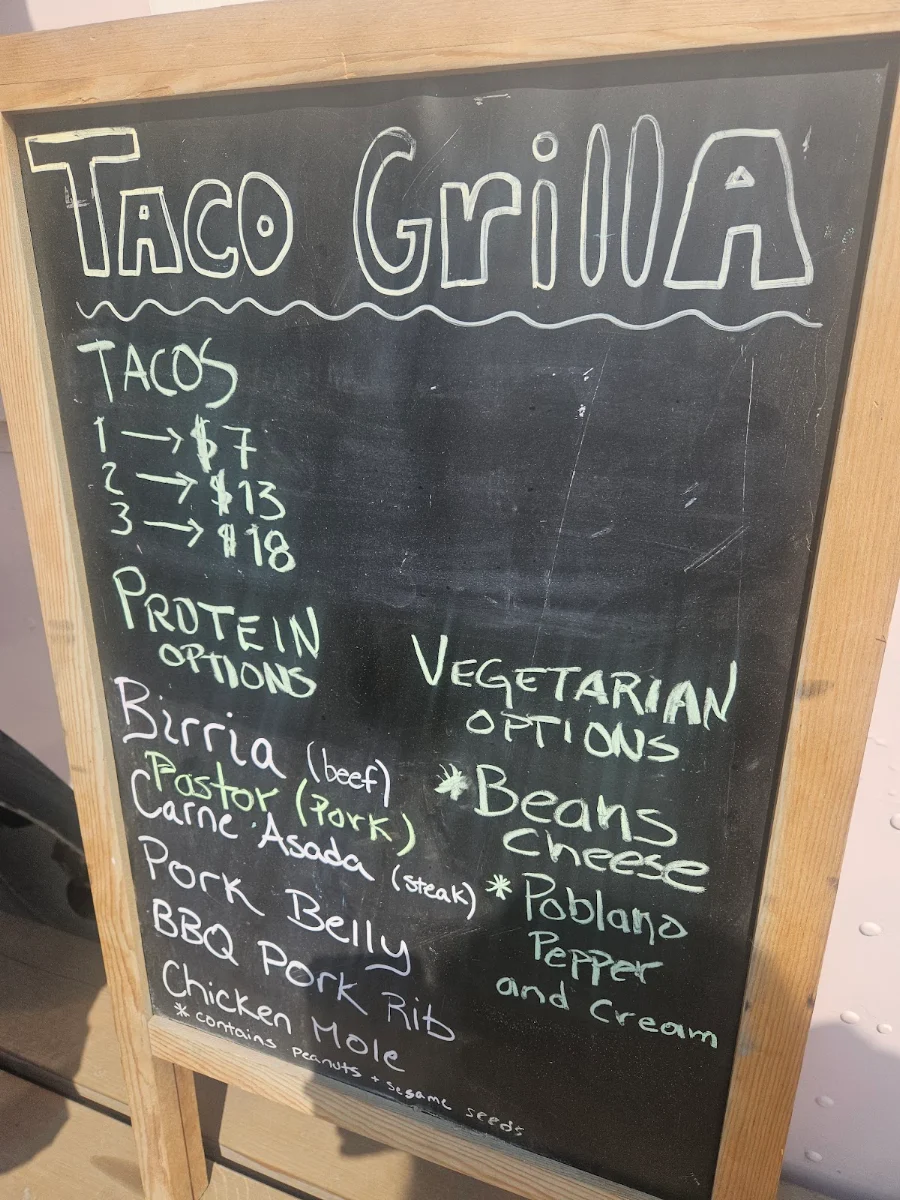 TACO GrillA
TACOS
1 → $7
2 → $13
3 → $18
PROTEIN
OPTIONS
Birria (beef)
Pastor (Pork)
Carne Asada (steak)
Pork Belly
BBQ Pork Rib
Chicken Mole
* contains peanuts + sesame seeds
VEGETARIAN
OPTIONS
* Beans
Cheese
* Poblano
Pepper
and Cream